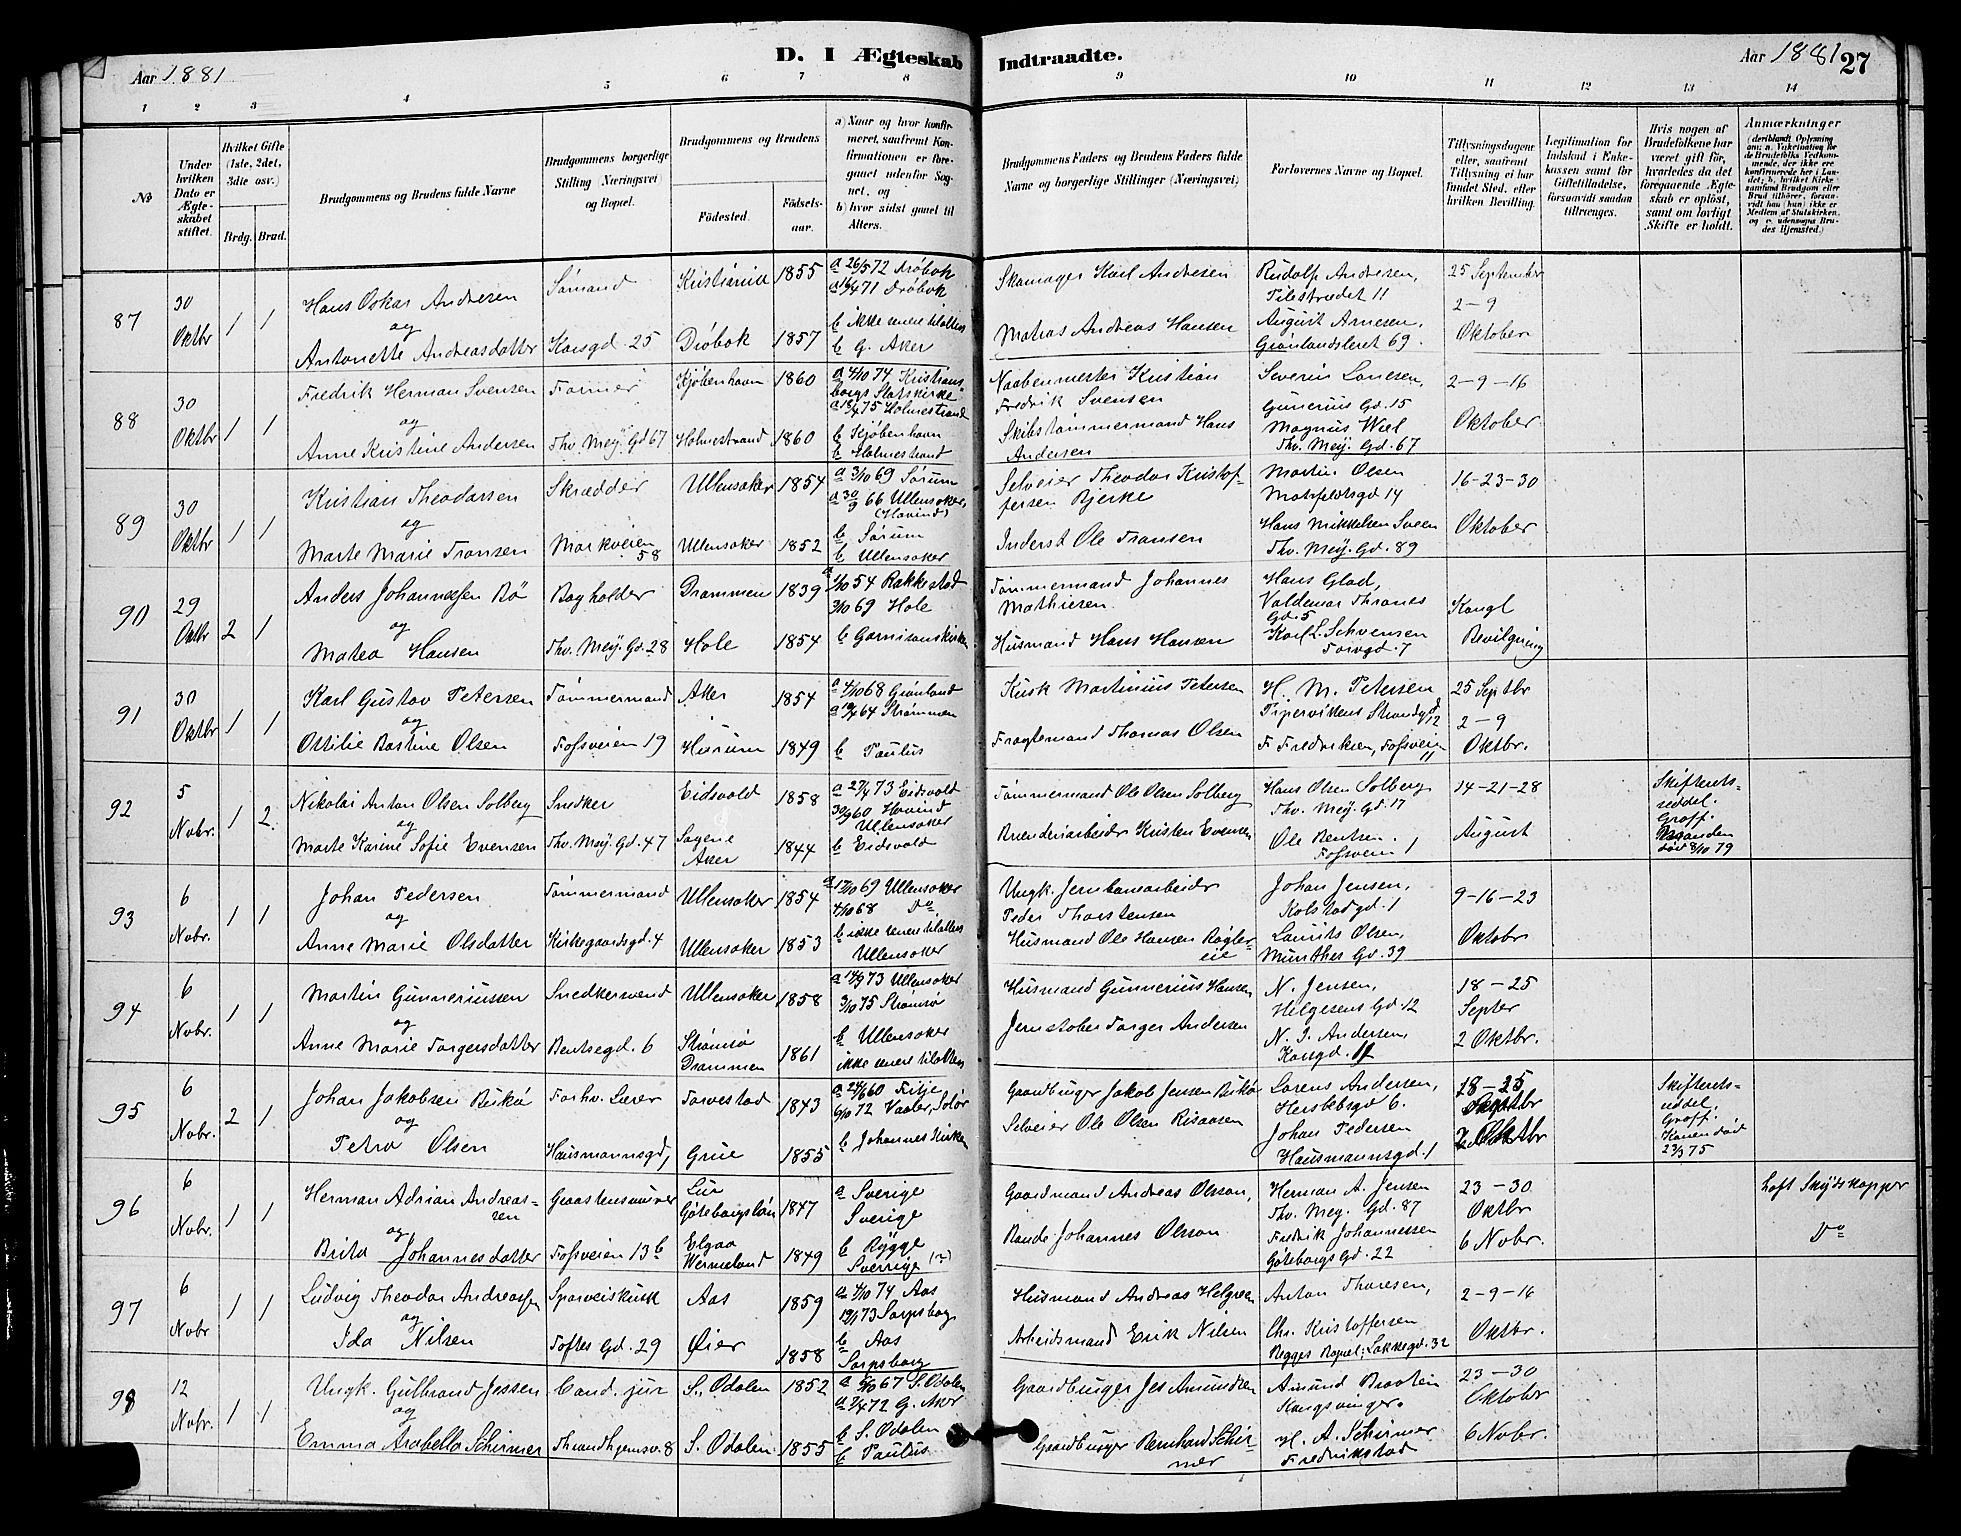 D. I Ægteskab Indtraadte.
Aar 1881
Aar 1881 27
1 2 3 4 5 6 7 8 9 10 11 12 13 14
№
Under hvilken Dato er Ægteskabet stiftet.
Hvilket Gifte (1ste, 2det, 3die osv.)
Brdg. Brud.
Brudgommens og Brudens fulde Navne
Brudgommens borgerlige Stilling (Næringsvei) og Bopæl.
Brudgommens og Brudens
Födested. Födselsaar.
a) Naar og hvor konfirmeret, samfremt Konfirmationen er foregaaet udenfor Sognet, og
b) hvor sidst gaaet til Alters.
Brudgommens Faders og Brudens Faders fulde Navne og borgerlige Stillinger (Næringsvei)
Forlovernes Navne og Bopæl.
Tillysningsdagene eller, saafremt Tillysning ei har fundet Sted, efter hvilken Bevilling.
Legitimation for Indskud i Enkekassen samt for Giftetilladelse, forsaavidt saadan tiltrænges.
Hvis nogen af Brudefolkene har været gift för, hvorledes da det foregaaende Ægteskab er oplöst, samt om lovligt Skifte er holdt.
Anmærkninger
87
30 Oktbr
1 1
Hans Oskar Andresen
og
Antonette Andreasdatter
Sømand
Korsgd. 25
Kristiania 1855
Drøbak 1857
a 26/5 72 Drøbak
a 16/4 71 Drøbak
b ikke senere til alters
b G. Aker
Skomager Karl Andresen
Matros Andreas Hansen
Rudolf Andresen,
Pilestrædet 11
August Arnesen,
Grønlandsleret 69.
25 September
2-9
Oktober
88
30 Oktbr
1 1
Fredrik Herman Svensen
og
Anne Kristine Andersen
Former
Thv. Mey. Gd 67
Kjøbenhavn 1860
Holmestrand 1860
a 4/10 74 Kristiansborgs Slotskirke
a 18/4 75 Holmestrand
b Kjøbenhavn
b Holmestrand
Kristian
Fredrik Svensen
Skibstømmermand Hans
Andersen
Severin
Gunerius Gd. 15
Magnus Wiel
Thv. Mey. Gd. 67
2-9-16
Oktober
89
30 Oktbr
1 1
Kristian Theodorsen
og
Marte Marie Fransen
Skrædder
Markveien 58
Ullensaker 1854
Ullensaker 1852
a 3/10 69 Sørum
a 30/9 66 Ullensaker, (Hovind)
b Sørum
b Ullensaker
Selveier Theodor Kristoffersen Bjerke
Inderst Ole Fransen
Martin Olsen
Motzfeldtsgd 14
Hans Mikkelsen Sveen
Thv. Mey. Gd. 89
16-23-30
Oktober
90
29 Oktbr
2 1
Anders Johannesen Bø
og
Matea Hansen
Bogholder
Thv. Mey. Gd. 28
Drammen 1839
Hole 1854
a 1/10 54 Rakkestad
3/10 69 Hole
b Garnisonskirken
Tømmermand Johannes
Mathiesen
Husmand Hans Hansen
Hans Glad,
Valdemar Thranes
Gd. 5
Karl L. Schvensen
Torvgd. 7
Kongl
Bevilgning
91
30 Oktbr
1 1
Karl Gustav Petersen
og
Ottilie Bastine Olsen
Tømmermand
Fossveien 19
Aker 1854
Hurum 1849
a 4/10 68 Grønland
a 64 Strømmen
b Paulus
Kusk Martinius Petersen
Fragtemand Thomas Olsen
H. M. Petersen
Pipervikens Strandgd 12
F. Fredriksen, Fossveien 11
25 Septbr
2-9
Oktbr.
92
5 Novbr.
1 2.
Nikolai Anton Olsen Solberg
og
Marte Karine Sofie Evensen
Snedker
Thv. Mey. Gd. 47
Eidsvold 1858
Sagene Aker 1844
a 27/4 73 Eidsvold
30/9 60 Hovind
Ullensaker
b Eidsvold
Tømmermand Ole Olsen Solberg
Brænderiarbeider Kristen Evensen
Hans Olsen Solberg
Thv. Mey. Gd. 17
Ole Bentsen
Fossvein 1
14-21-28
August
Skifterets-
seddel.
Groff.
Manden
død 8/10 79
93
6 Novbr.
1 1
Johan Pedersen
og
Anne Marie Olsdatter
Tømmermand
Kirkegaardsgd. 4
Ullensaker 1854
Ullensaker 1853
a 17/10 69 Ullensaker
4/10 68 Do.
b ikke senere til alters
Ullensaker
Ungk. Jernbanearbeider
Peder Thorstensen
Husmand Ole Hansen Røgler-
eie
Johan Jensen,
Kolstadgd. 1
Laurits Olsen,
Munthes Gd. 39
9-16-23
Oktober
94
6 Novbr.
1 1
Martin Gunneriussen
og
Anne Marie Torgersdatter
Snedkersvend
Bentsegd. 6
Ullensaker 1858
Strømsø Drammen 1861
a 14/9 73 Ullensaker
3/10 75 Strømsø
b Ullensaker
ikke senere til alters
Husmand Gunnerius Hansen
Jernstøber Torger Andersen
N. Jensen,
Helgesens Gd. 12
N. J. Andersen,
Korsgd. 11
18-25
Septer
2 Oktbr.
95
6 Novbr.
2 1
Johan Jakobsen Bukø
og
Petra Olsen
Forhv. Lærer
Hausmannsgd. 1
Torvestad 1843
Grue 1855
a 24/6 60 Fitje
6/10 72 Vaaler, Solør
b Johannes Kirken
Gaardbruger Jakob Jensen Bukø
Selveier Ole Olsen Risaasen
Lorens Andersen,
Herslebsgd 6.
Johan Pedersen
Hausmannsgd. 1
18-25
Septbr
2 Oktbr
Skifterets-
seddel,
Groff.
Konen død
23/3 75
96
6 Novbr.
1 1
Herman Adrian Andreas-
sen
og
Brita Johannesdatter
Graastensmurer
Fossveien 13 b
Lur Gøteborgslän 1847
Elgaa Wermeland 1849
a Sverige
Sverige
b Rygge
Sverige (?)
Gaardmand Andreas Olsson,
Bonde Johannes Olsson
Herman A. Jensen
Thv. Mey. Gd. 87
Fredrik Johannessen
Gøteborgs Gd. 22
23-30
Oktbr
6 Novbr.
havt Skydskopper
Do
97
6 Novbr
1 1
Ludvig Theodor Andreassen
og
Ida Nilsen
Sporveiskusk
Toftes Gd. 29
Aas 1859
Øier 1858
a 4/10 74 Aas
73 Sarpsborg
b Aas
Sarpsborg
Husmand Andreas Helgesen
Arbeidsmand Erik Nilsen
Anton Thoresen,
Chr. Kristoffersen
Begges Bopæl; Løkkegd. 32
2-9-16
Oktbr.
98
12 Novbr.
1 1
Ungk. Gulbrand Jessen
og
Emma Arabella Schirmer
Cand. jur
Throndhjemsv. 8
S. Odalen 1852
S. Odalen 1855
a 6/10 67 S. Odalen
a 7/4 72 G. Aker
b S. Odalen
b Paulus
Gaardbruger Jes Amundsen
Gaardbruger Bernhard Schir-
mer
Amund Braaten
Kongsvinger.
H. A. Schirmer
Fredrikstad
23-30
Oktober
6 Novbr.